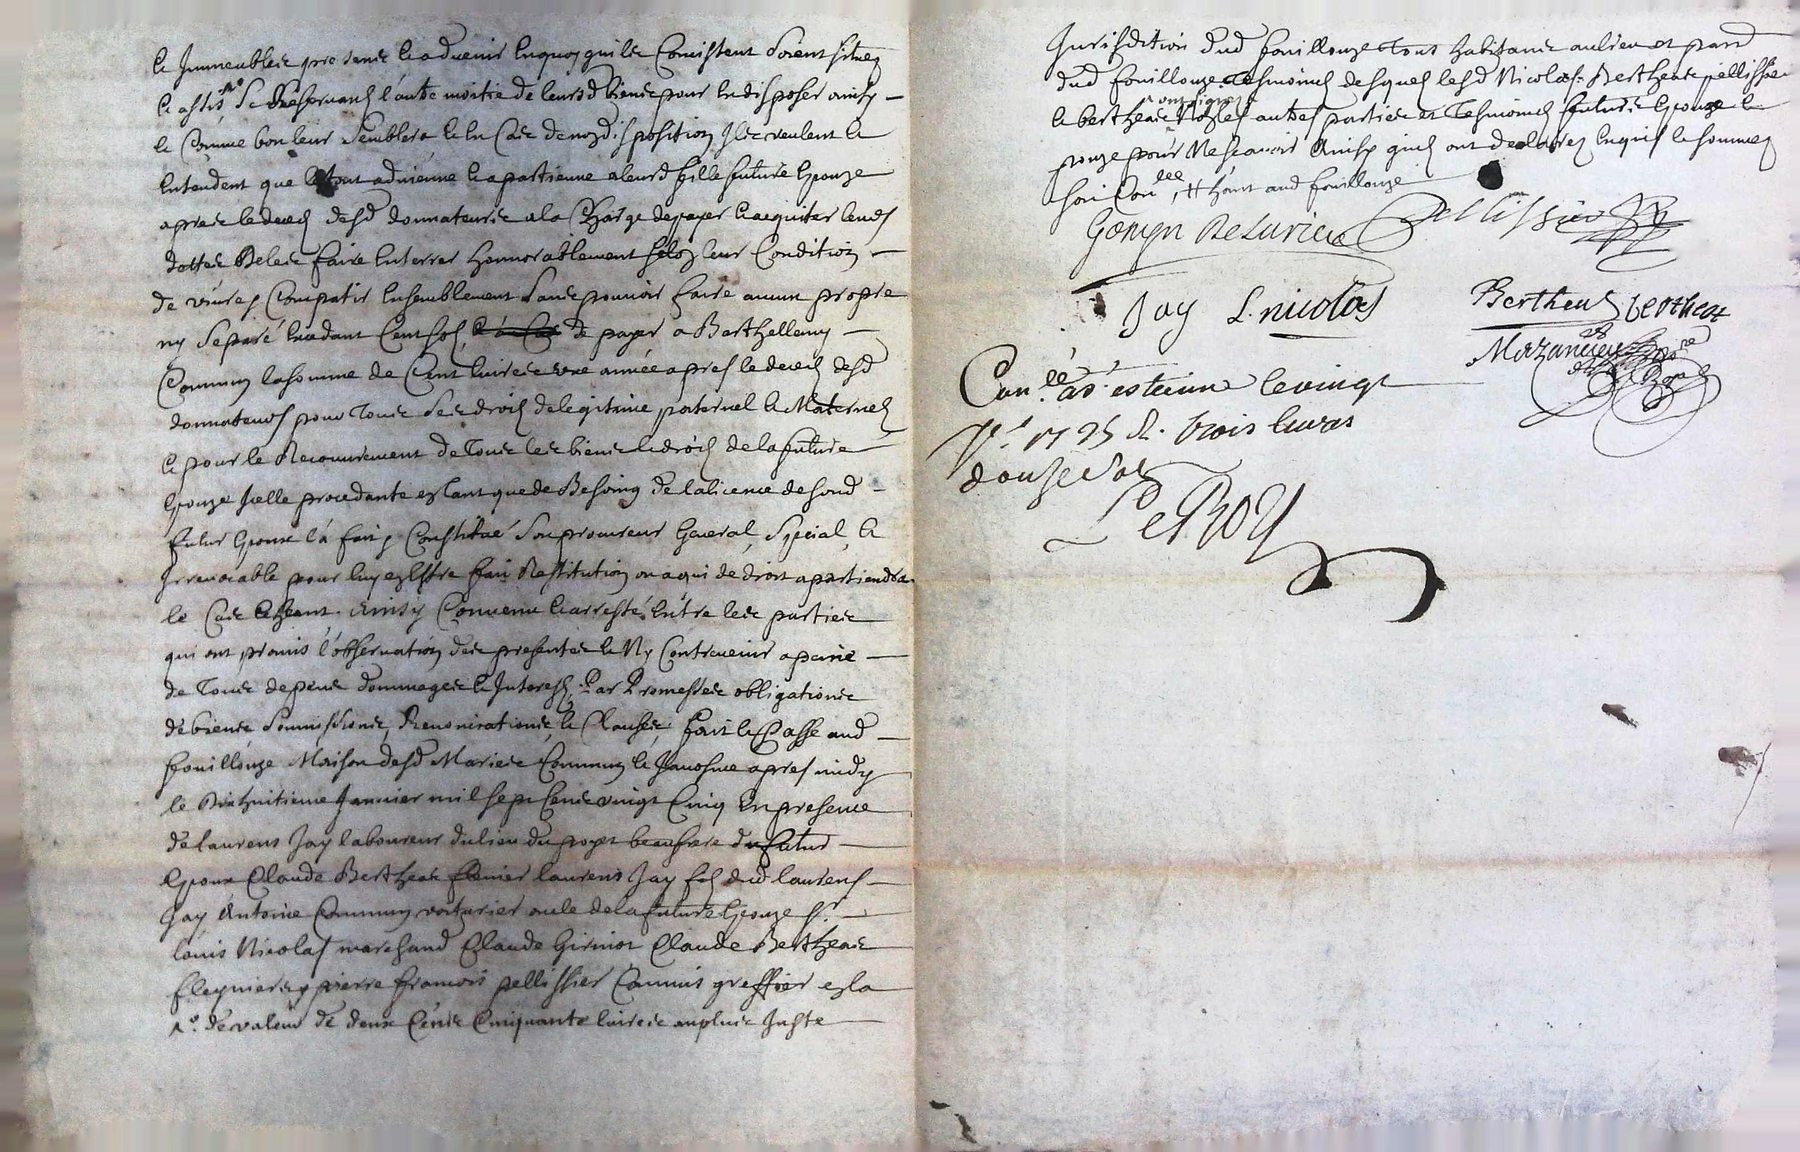 et Immeubles presents et advenir enquoy quils Consistent Soient situez
et assis, Se Reservants l'autre moitie de leursd biens pour en disposer ainsy
et Comme bon leur Semblera et en Cas de nondisposition Ils veulent et
entendent que le tout advienne et apartienne a leurd fille future Epouze
apres le deces desd donnateurs a la Charge de payer et acquiter leurs
dettes & les faire enterrer honnorablement selon leur Condition
de vivre & Compatir ensemblement Sans pouvoir faire aucun propre
ny Separé de payer a Barthellemy
Commun la somme de Cent livres une année apres le deces desd
donnateurs pour tous Ses droits de legitime paternel et Maternel
et pour le Recouvrement de tous les biens et droits de la future
Epouze Icelle procedante estant que de Besoing de la licence de sond
futur Epoux l'a fait & Constitué Son procureur General, Special, et
Irrevocable pour en estre fait Restitution ou a qui de droit apartiendra
le Cas echeant ainsy Convenu et arresté Entre les parties
qui ont promis l'observation des presentes et Ny Contrevenir a peine
de tous depens dommages et Interests, Par Promesses obligations
de biens Soumissions, Renonciations, et Clauses fait et Passé aud
fouillouze Maison desd Maries Commun et apres midy
le Dixhuitieme Janvier mil sept Cents vingt Cinq En presence
de laurens Jay laboureur du lieu du poyet beaufrere du futur
Epoux Claude Bertheas laurens Jay fils dud laurens
Jay Antoine Commun voiturier oncle de la future Epouze Sr
louis Nicolas marchand Claude Giriniot Claude Bertheas
pierre francois pellissier Commis greffier en la
de valeur de deux Cents Cinquante livres au plus Juste
Jurisdition dud fouillouze tous habitans au lieu et parr
dud fouillouze tesmoins desquels lesd Nicolas Bertheas pellissier
et bertheas ont signé Non les autres parties et tesmoins future Epouze
pour Ne scavoir Ainsy quils ont declarez Enquis et sommez
soit Con lee, aud fouillouze
Pellissier
Jay L. nicolas Bertheas bertheas
Mazancieux
Con.lé à St estienne le vingt
1725 R. trois livres
douse sols
LeRoy